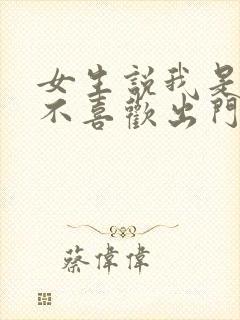 女生說我是
不喜歡出門
蔡偉偉